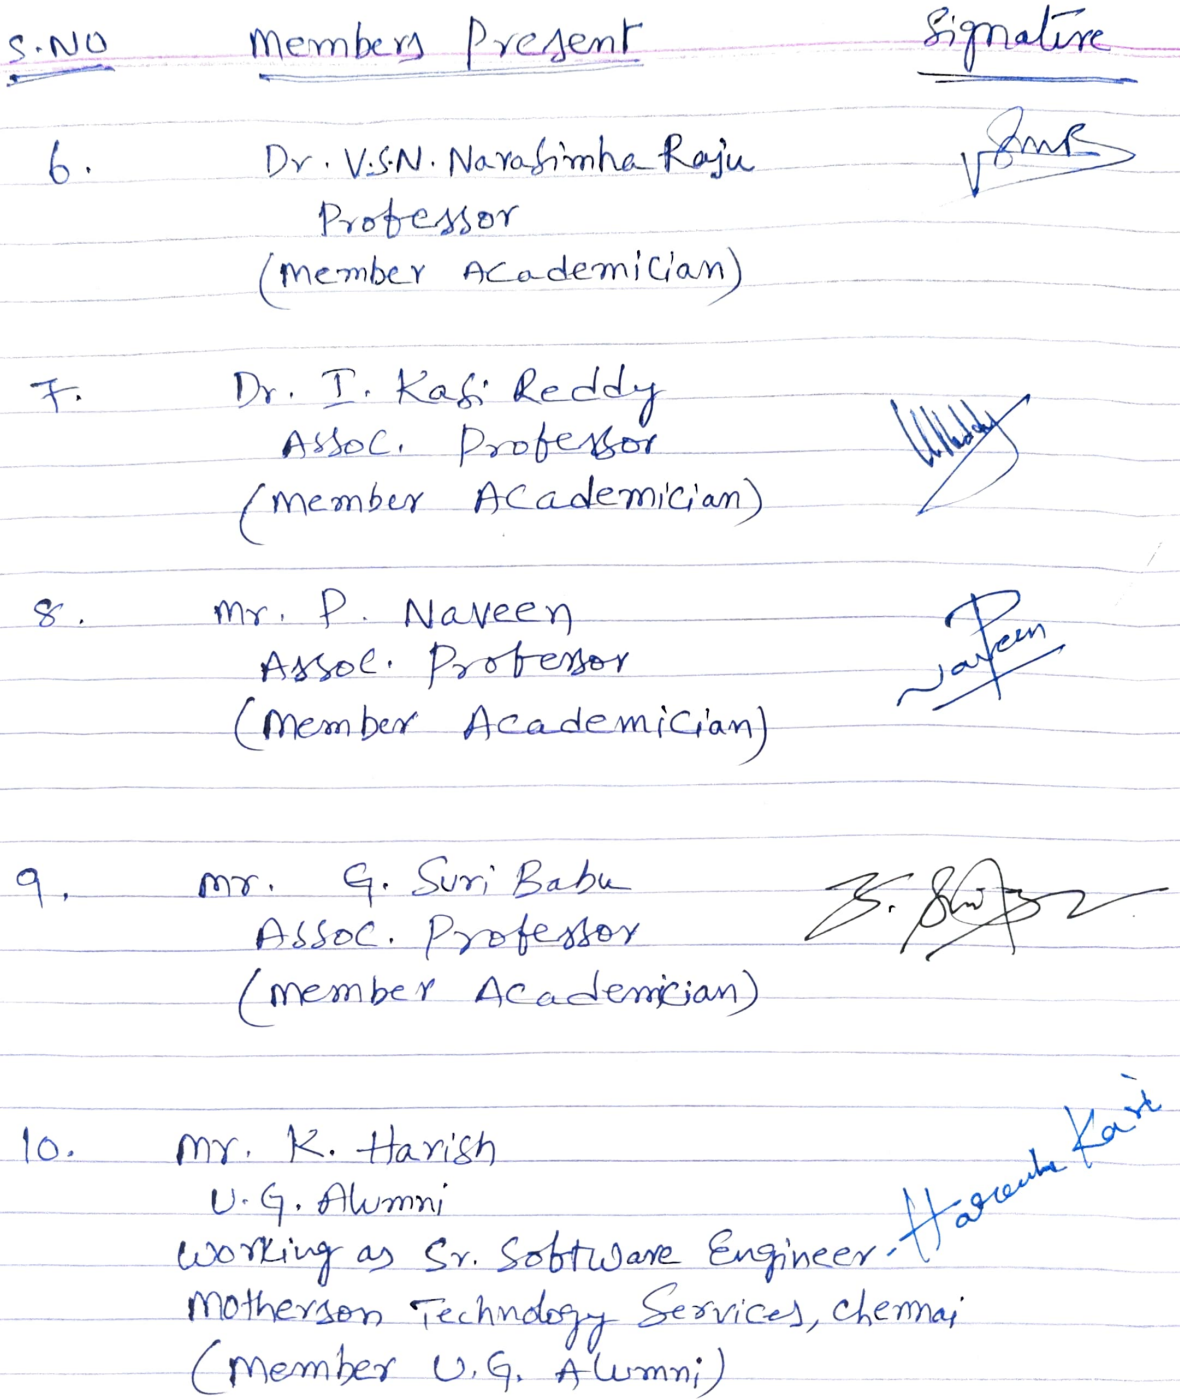 S.NO Members Present Signature
6. Dr. V.S.N. Narasimha Raju
Professor
(Member Academician)
7. Dr. I. Kasi Reddy
Assoc. Professor
(Member Academician)
8. Mr. P. Naveen
Assoc. Professor
(Member Academician)
Naveen
9. Mr. G. Suri Babu
Assoc. Professor
(Member Academician)
10. Mr. K. Harish
U.G. Alumni
Working as Sr. Software Engineer.
Motherson Technology Services, Chennai
(Member U.G. Alumni)